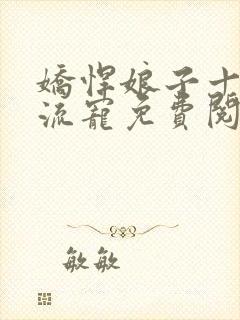 嬌悍娘子十
流寵免費閱
敏敏